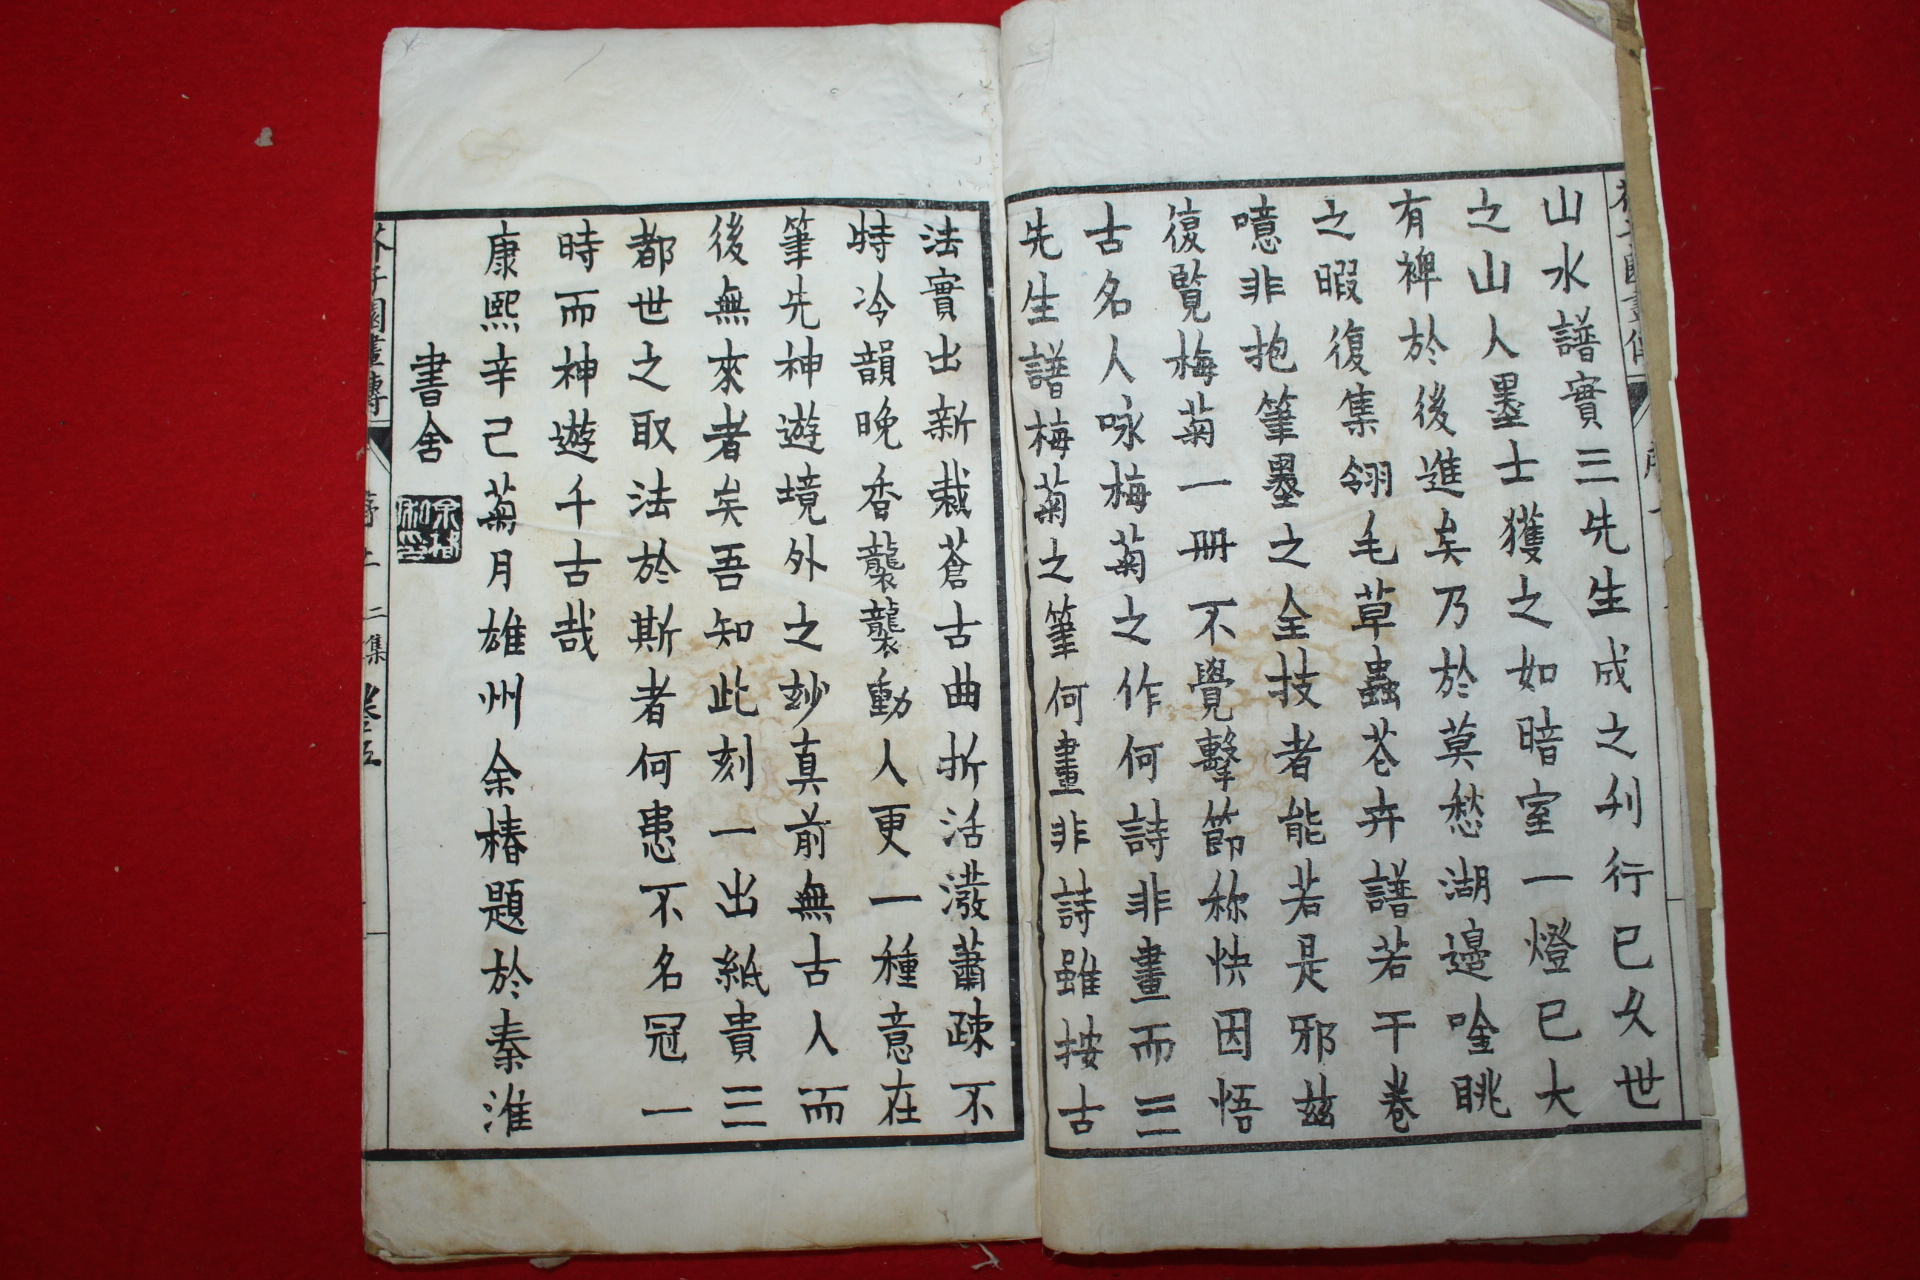 山水譜實三先生成之刋行已久世
之山人墨士獲之如暗室一燈已大
有裨於後進矣乃於莫愁湖邉吟眺
之暇復集翎毛草蟲花卉譜若干卷
噫非抱筆墨之全技者能若是邪玆
復覧梅菊一冊不覺擊節称快因悟
古名人咏梅菊之作何詩非畫而三
先生譜梅菊之筆何畫非詩雖按古
法實出新裁蒼古曲折活潑蕭疎不
特冷韻晚香襲襲動人更一種意在
筆先神遊境外之妙真前無古人而
後無來者矣吾知此刻一出紙貴三
都世之取法於斯者何患不名冠一
時而神遊千古哉
康熙辛己菊月雄州余椿題於秦淮
書舍
芥子園畫傳 序 二 二集 卷五